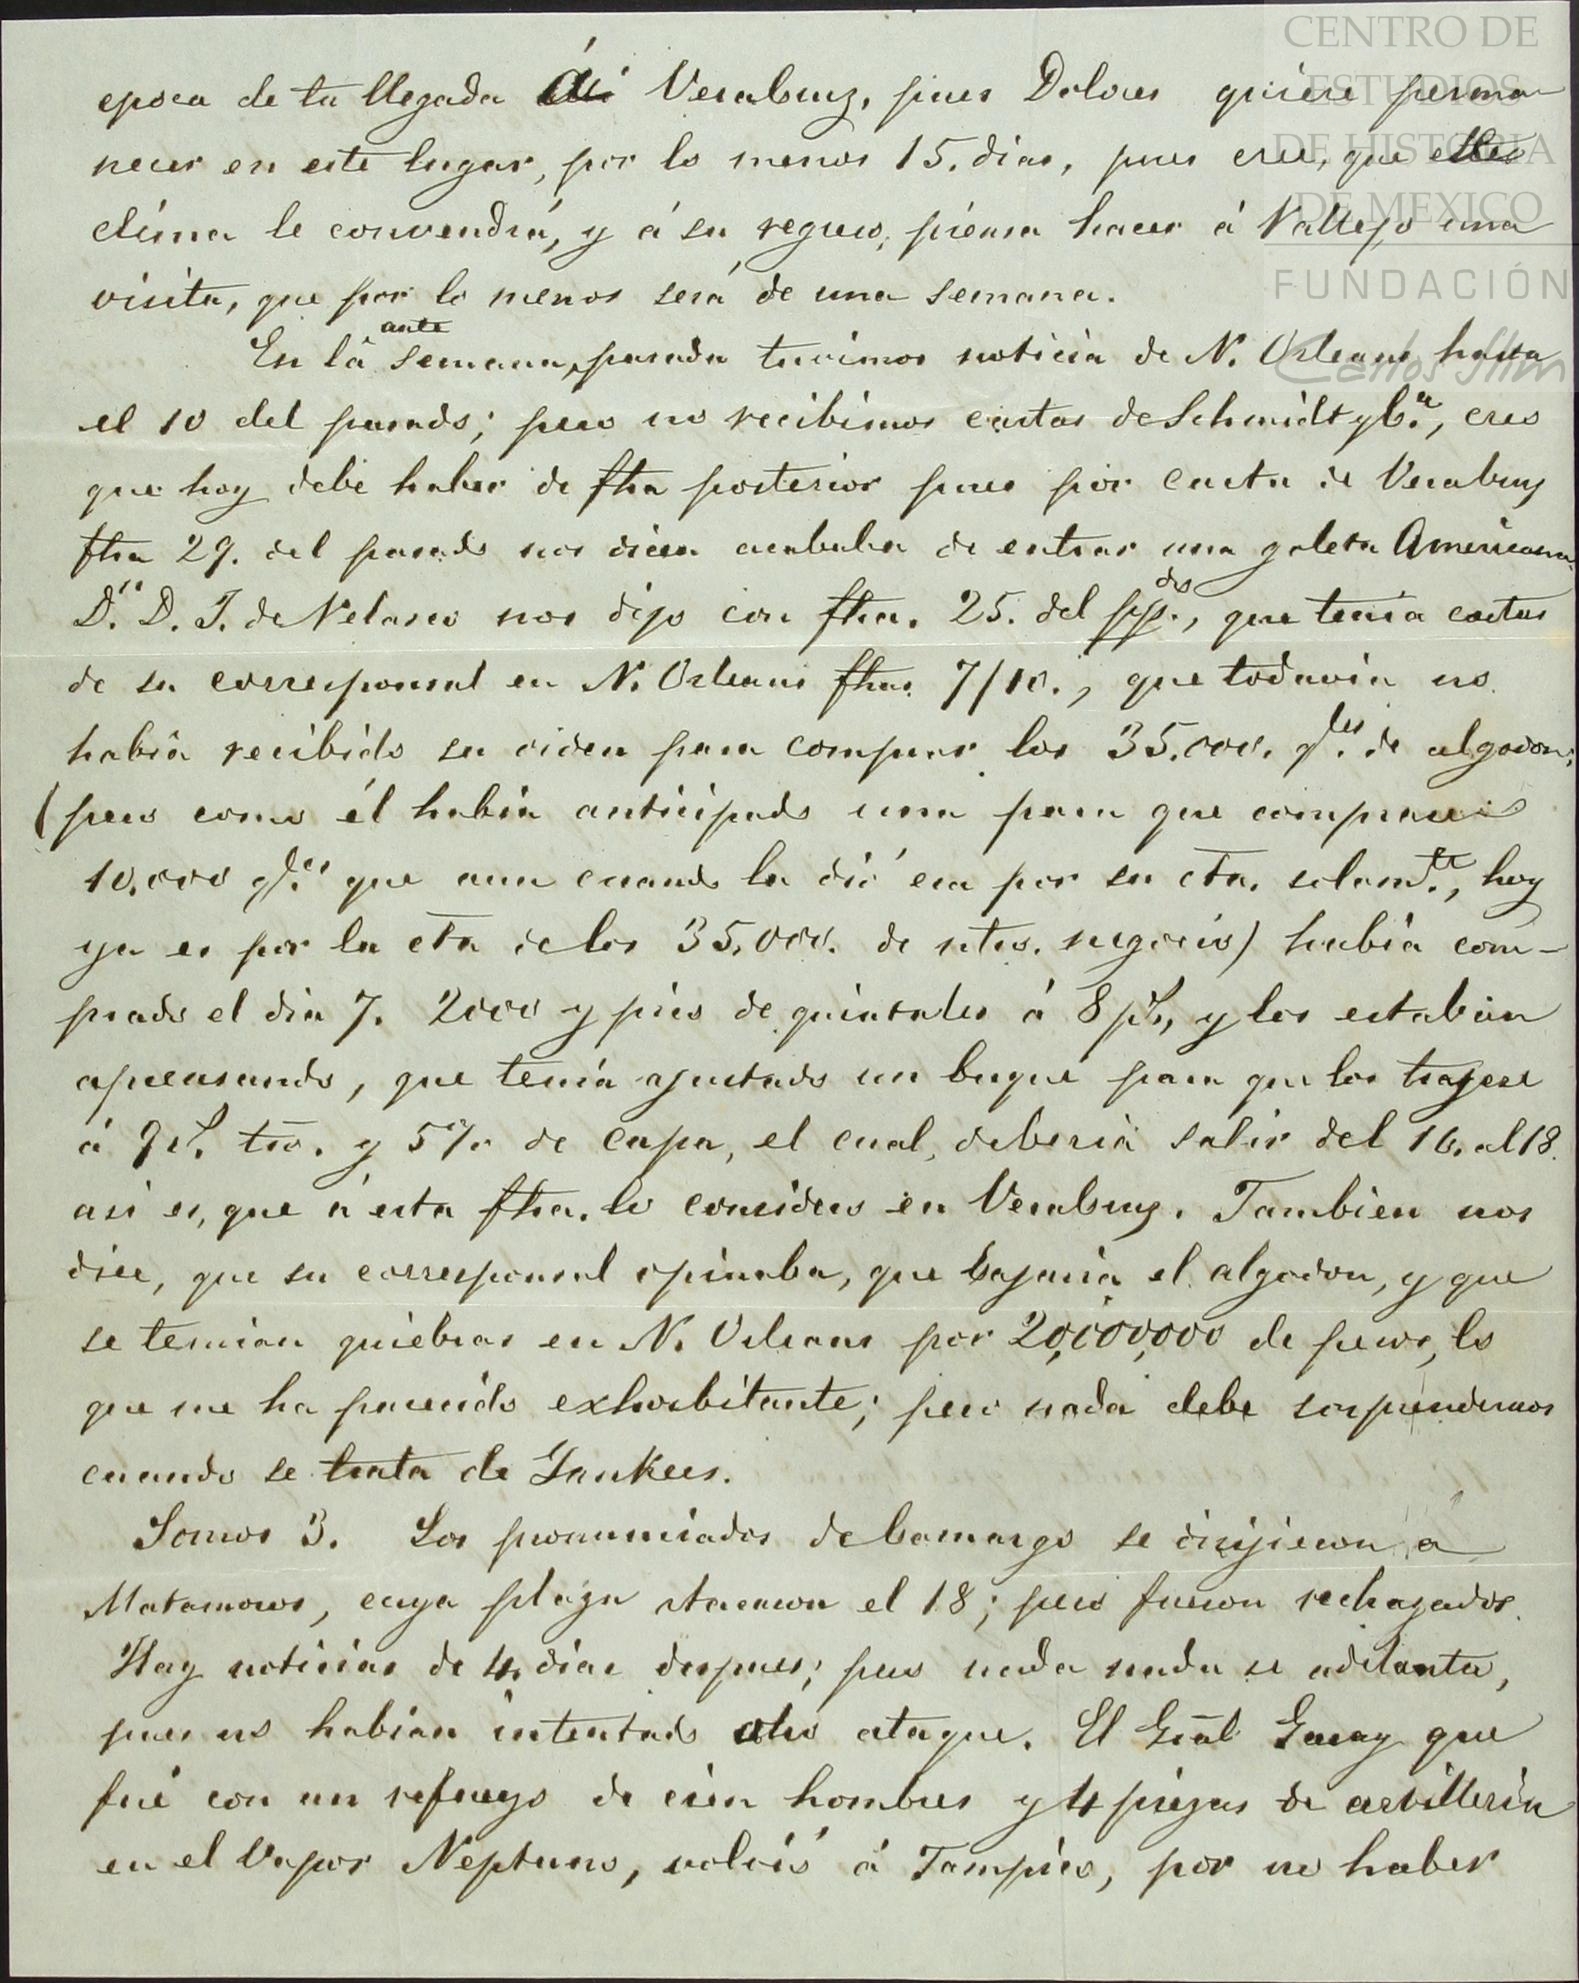 CENTRO DE
ESTUDIOS
DE HISTORIA
DE MEXICO
FUNDACIÓN
Carlos Slim
epoca de tu llegada á Veracruz, pues Dolores quiere perma-
necer en este lugar, por lo menos 15. dias, pues cree, que este
clima le convendrá, y á su regreso, piensa hacer á Vallejo una
visita, que por lo menos será de una semana.
En la ante semana pasada tuvimos noticia de N. Orleans hasta
el 10 del pasado; pero no recibimos cartas de Schmidt y C.ª, creo
que hoy debe haber de fha posterior pues por carta de Veracruz
fha 29. del pasado nos dicen acababa de entrar una goleta Americana.
D.n D. J. de Velasco nos dijo con fha. 25. del pp.do, que tenia cartas
de su corresponsal en N. Orleans fhas. 7/10., que todavia no
habia recibido su orden para comprar los 35.000. q.les de algodon;
(pero como él habia anticipado una para que comprase
10.000 q.les que aun cuando la dió era por su cta. solam.te, hoy
ya es por la cta de los 35.000. de ntro. negocio) habia com-
prado el dia 7. 2000 y pico de quintales á 8 p%, y los estaban
aprensando, que tenia ajustado un buque para que los trajese
á tro. y 5% de capa, el cual, deberia salir del 16. al 18.
asi es, que á esta fha. lo considero en Veracruz. Tambien nos
dice, que su corresponsal opinaba, que bajaria el algodon, y que
se temian quiebras en N. Orleans por 20,000,000 de pesos, lo
que me ha parecido exhorbitante; pero nada debe sorprendernos
cuando se trata de Yankees.
Somos 3. Los pronunciados de Camargo se dirijieron á
Matamoros, cuya plaza atacaron el 18; pero fueron rechazados.
Hay noticias de 4 dias despues; pero nada nada se adelanta,
pues no habian intentado otro ataque. El Gral Garay que
fué con un refuerzo de cien hombres y 4 piezas de artilleria
en el Vapor Neptuno, volvió á Tampico, por no haber